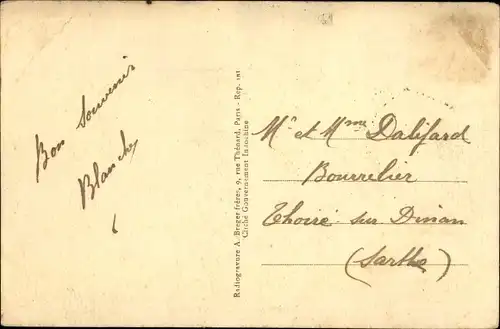 Bon Souvenir
Blanche
Radiogravure A. Breger frères, 9, rue Thénard, Paris - Rep. 181
Cliché Gouvernement Indochine
Mr et Mme Dalifard
Bourrelier
Thoiré sur Dinan
(Sarthe)